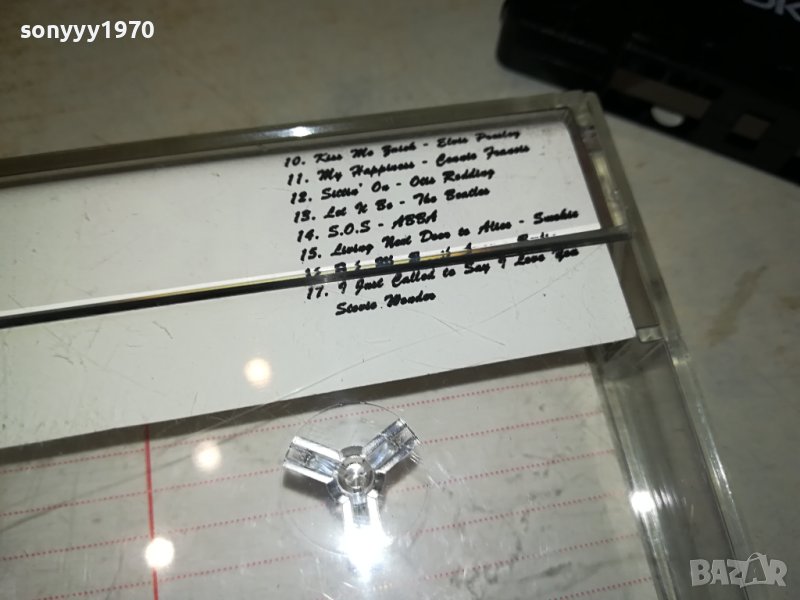 sonyyy1970
10. Kiss Me Quick - Elvis Presley
11. My Happiness - Connie Francis
12. Sittin' On - Otis Redding
13. Let It Be - The Beatles
14. S.O.S - ABBA
15. Living Next Door to Alice - Smokie
16.
17. I Just Called to Say I Love You
Stevie Wonder
BAZAR